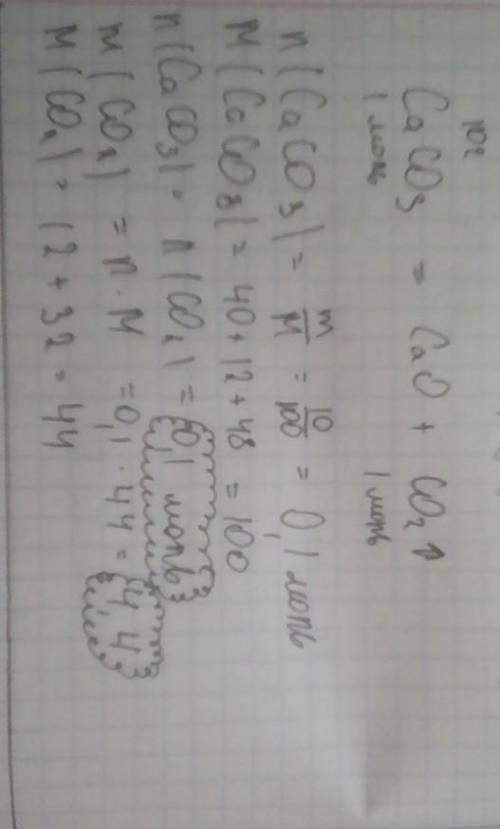 10г
CaCO3 = CaO + CO2↑
1 моль 1 моль
n(CaCO3) = m/M = 10/100 = 0,1 моль
M(CaCO3) = 40+12+48 = 100
n(CaCO3) = n(CO2) = 0,1 моль
m(CO2) = n·M = 0,1·44 = 4,4
M(CO2) = 12+32=44